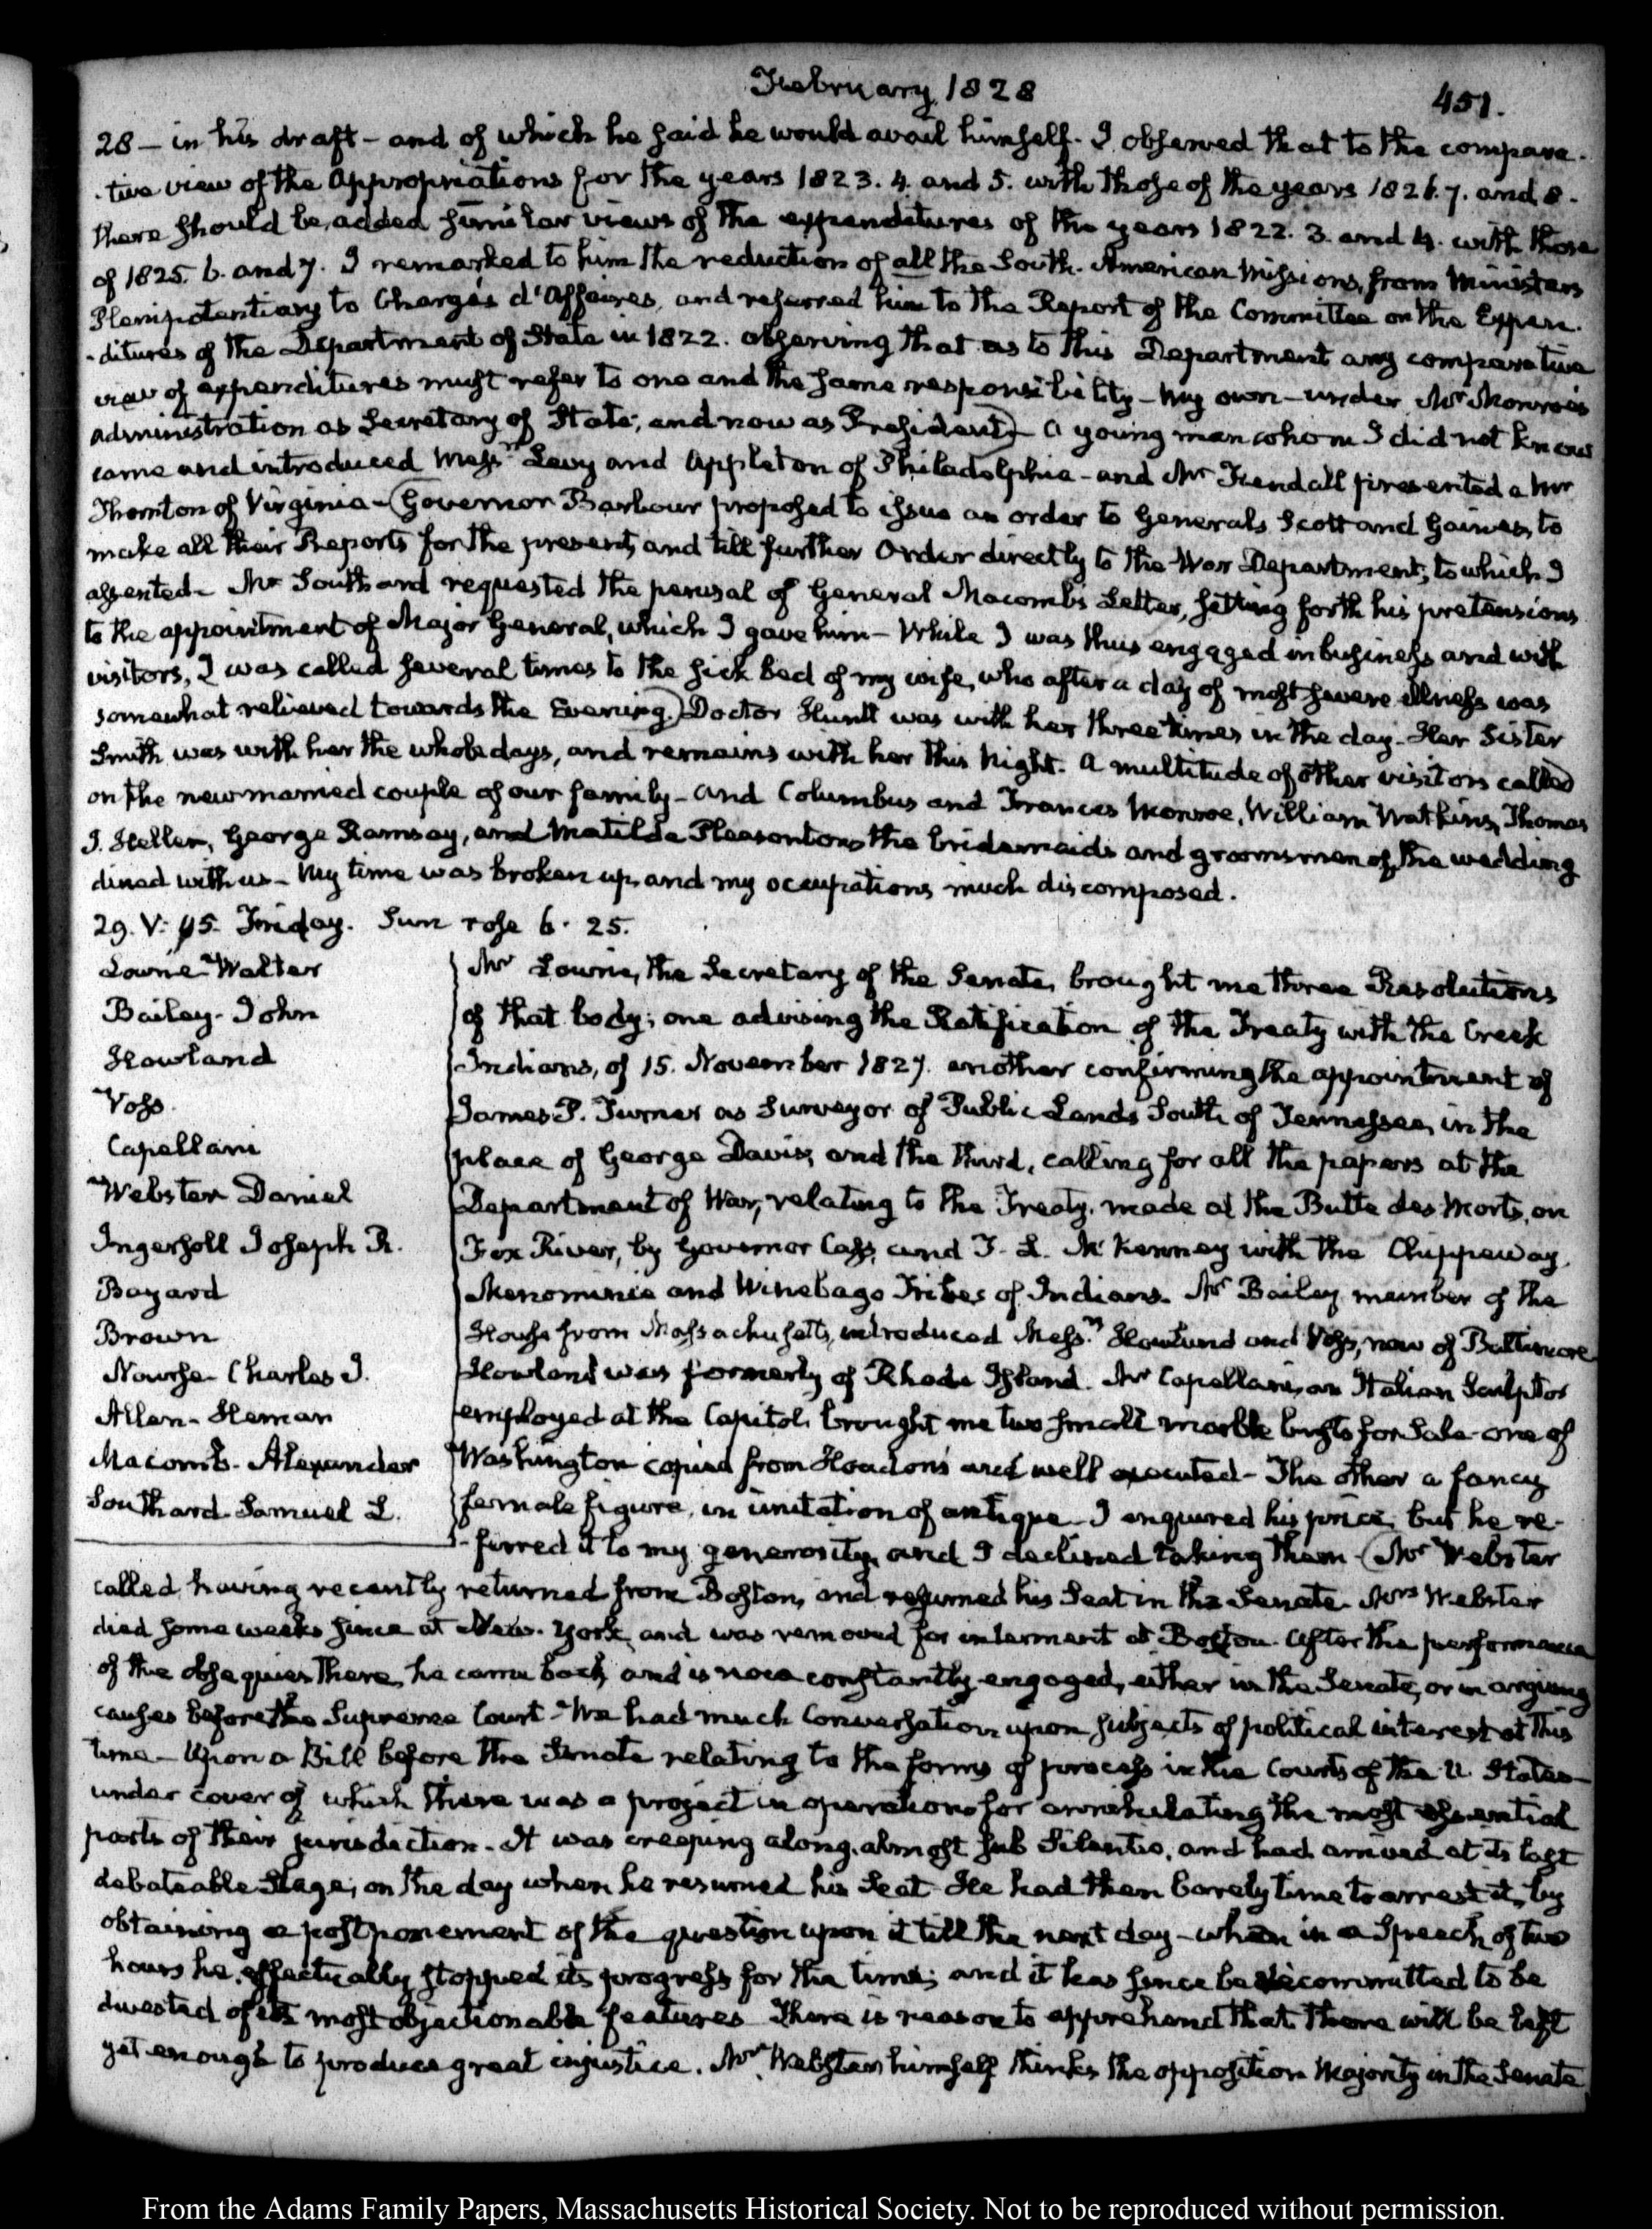 February 1828
451.
28 – in his draft – and of which he said he would avail himself. I observed that to the compara-
-tive view of the Appropriations for the years 1823. 4. and 5. with those of the years 1826. 7. and 8.
there should be added similar views of the expenditures of the years 1822. 3. and 4. with those
of 1825. 6. and 7. I remarked to him the reduction of all the South-American Missions, from Ministers
Plenipotentiary to Chargés d'Affaires, and referred him to the Report of the Committee on the Expen-
-ditures of the Department of State in 1822. observing that as to this Department any comparative
view of expenditures must refer to one and the same responsibility – my own – under Mr Monroe's
administration as Secretary of State; and now as President) – A young man whom I did not know
came and introduced Messrs Levy and Appleton of Philadelphia – and Mr Kendall presented a Mr
Thornton of Virginia – (Governor Barbour proposed to issue an order to Generals Scott and Gaines, to
make all their Reports for the present, and till further Order directly to the War Department; to which I
assented – Mr Southard requested the perusal of General Macomb's Letter, setting forth his pretensions
to the appointment of Major General, which I gave him – While I was thus engaged in business and with
visitors, I was called several times to the sick bed of my wife, who after a day of most severe illness was
somewhat relieved towards the Evening.) Doctor Huntt was with her three times in the day – Her Sister
Smith was with her the whole day, and remains with her this Night. A multitude of other visitors called
on the new married couple of our family – and Columbus and Frances Monroe, William Watkins, Thomas
J. Heller, George Ramsay, and Matilda Pleasonton, the bridesmaids and groomsmen of the wedding
dined with us – My time was broken up, and my occupations much discomposed.
29. V: 45. Friday. Sun rose 6. 25.
Lowrie Walter
Bailey – John
Howland
Voss.
Capellani
Webster Daniel
Ingersoll Joseph R.
Bayard
Brown
Nourse – Charles J.
Allen – Heman
Macomb – Alexander
Southard – Samuel L.
Mr Lowrie, the Secretary of the Senate, brought me three Resolutions
of that body; one advising the Ratification of the Treaty with the Creek
Indians, of 15. November 1827. another confirming the appointment of
James P. Turner as Surveyor of Public Lands South of Tennessee, in the
place of George Davis; and the third, calling for all the papers at the
Department of War, relating to the Treaty made at the Butte des Morts, on
Fox River, by Governor Cass, and T. L. McKenney with the Chippeway,
Menominie and Winebago Tribes of Indians. Mr Bailey, member of the
House from Massachusetts, introduced Messrs Howland and Voss, now of Baltimore
Howland was formerly of Rhode Island. Mr Capellani, an Italian Sculptor
employed at the Capitol, brought me two small marble busts for Sale – one of
Washington copied from Houdon's and well executed – The other a fancy
female figure, in imitation of antique – I enquired his price, but he re-
-ferred it to my generosity, and I declined taking them – (Mr Webster
called, having recently returned from Boston, and resumed his Seat in the Senate. Mrs Webster
died some weeks since at New-York, and was removed for interment at Boston. After the performance
of the obsequies there, he came back, and is now constantly engaged, either in the Senate, or in arguing
causes before the Supreme Court – We had much Conversation upon subjects of political interest at this
time – Upon a Bill before the Senate relating to the forms of process in the Courts of the U. States –
under cover of which there was a project in operation for annihilating the most essential
parts of their jurisdiction – It was creeping along, almost sub Silentio, and had arrived at its last
debateable Stage, on the day when he resumed his Seat. He had then barely time to arrest it, by
obtaining a postponement of the question upon it till the next day – when in a Speech of two
hours he effectually stopped its progress for the time; and it has since been recommitted to be
divested of its most objectionable features. There is reason to apprehend that there will be left
yet enough to produce great injustice. Mr Webster himself thinks the opposition Majority in the Senate
From the Adams Family Papers, Massachusetts Historical Society. Not to be reproduced without permission.